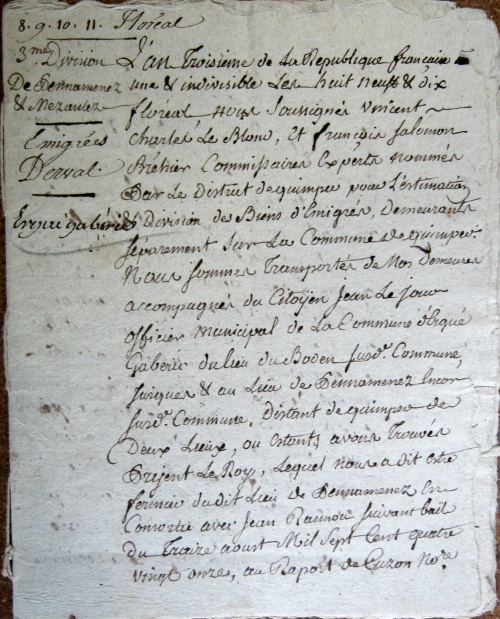 8. 9. 10. 11. floréal
3me Division
De Pennamenez
& Mezanlez
Emigrées
Derval
Ergué gaberic
L'an Troisieme de La Republique française
une & indivisible Les huit neuf & dix
floréal, nous soussignés vincent
Charles Le Blond, Et françois Salomon
Bréhier Commissaires Experts nommés
par Le District de quimper pour L'estimation
& Division des Biens d'Emigrés, Demeurants
séparement sur La Commune de quimper
Nous sommes Transportés de Nos Demeures
accompagnés du Citoyen Jean Le jour
officier Municipal de La Commune d'Ergué
Gaberic du Lieu du Boden susd. Commune,
jusques & au Lieu de Pennamenez Encor
susd. Commune, Distant de quimper de
Deux Lieux, ou Estants avons Trouvés
Prijent Le Roy, Lequel nous a dit estre
fermier dudit Lieu de Pennamenez En
Consortie avec Jean suivant bail
du Traize aoust Mil Sept Cent quatre
vingt onze, au Raport de Cuzon Nore